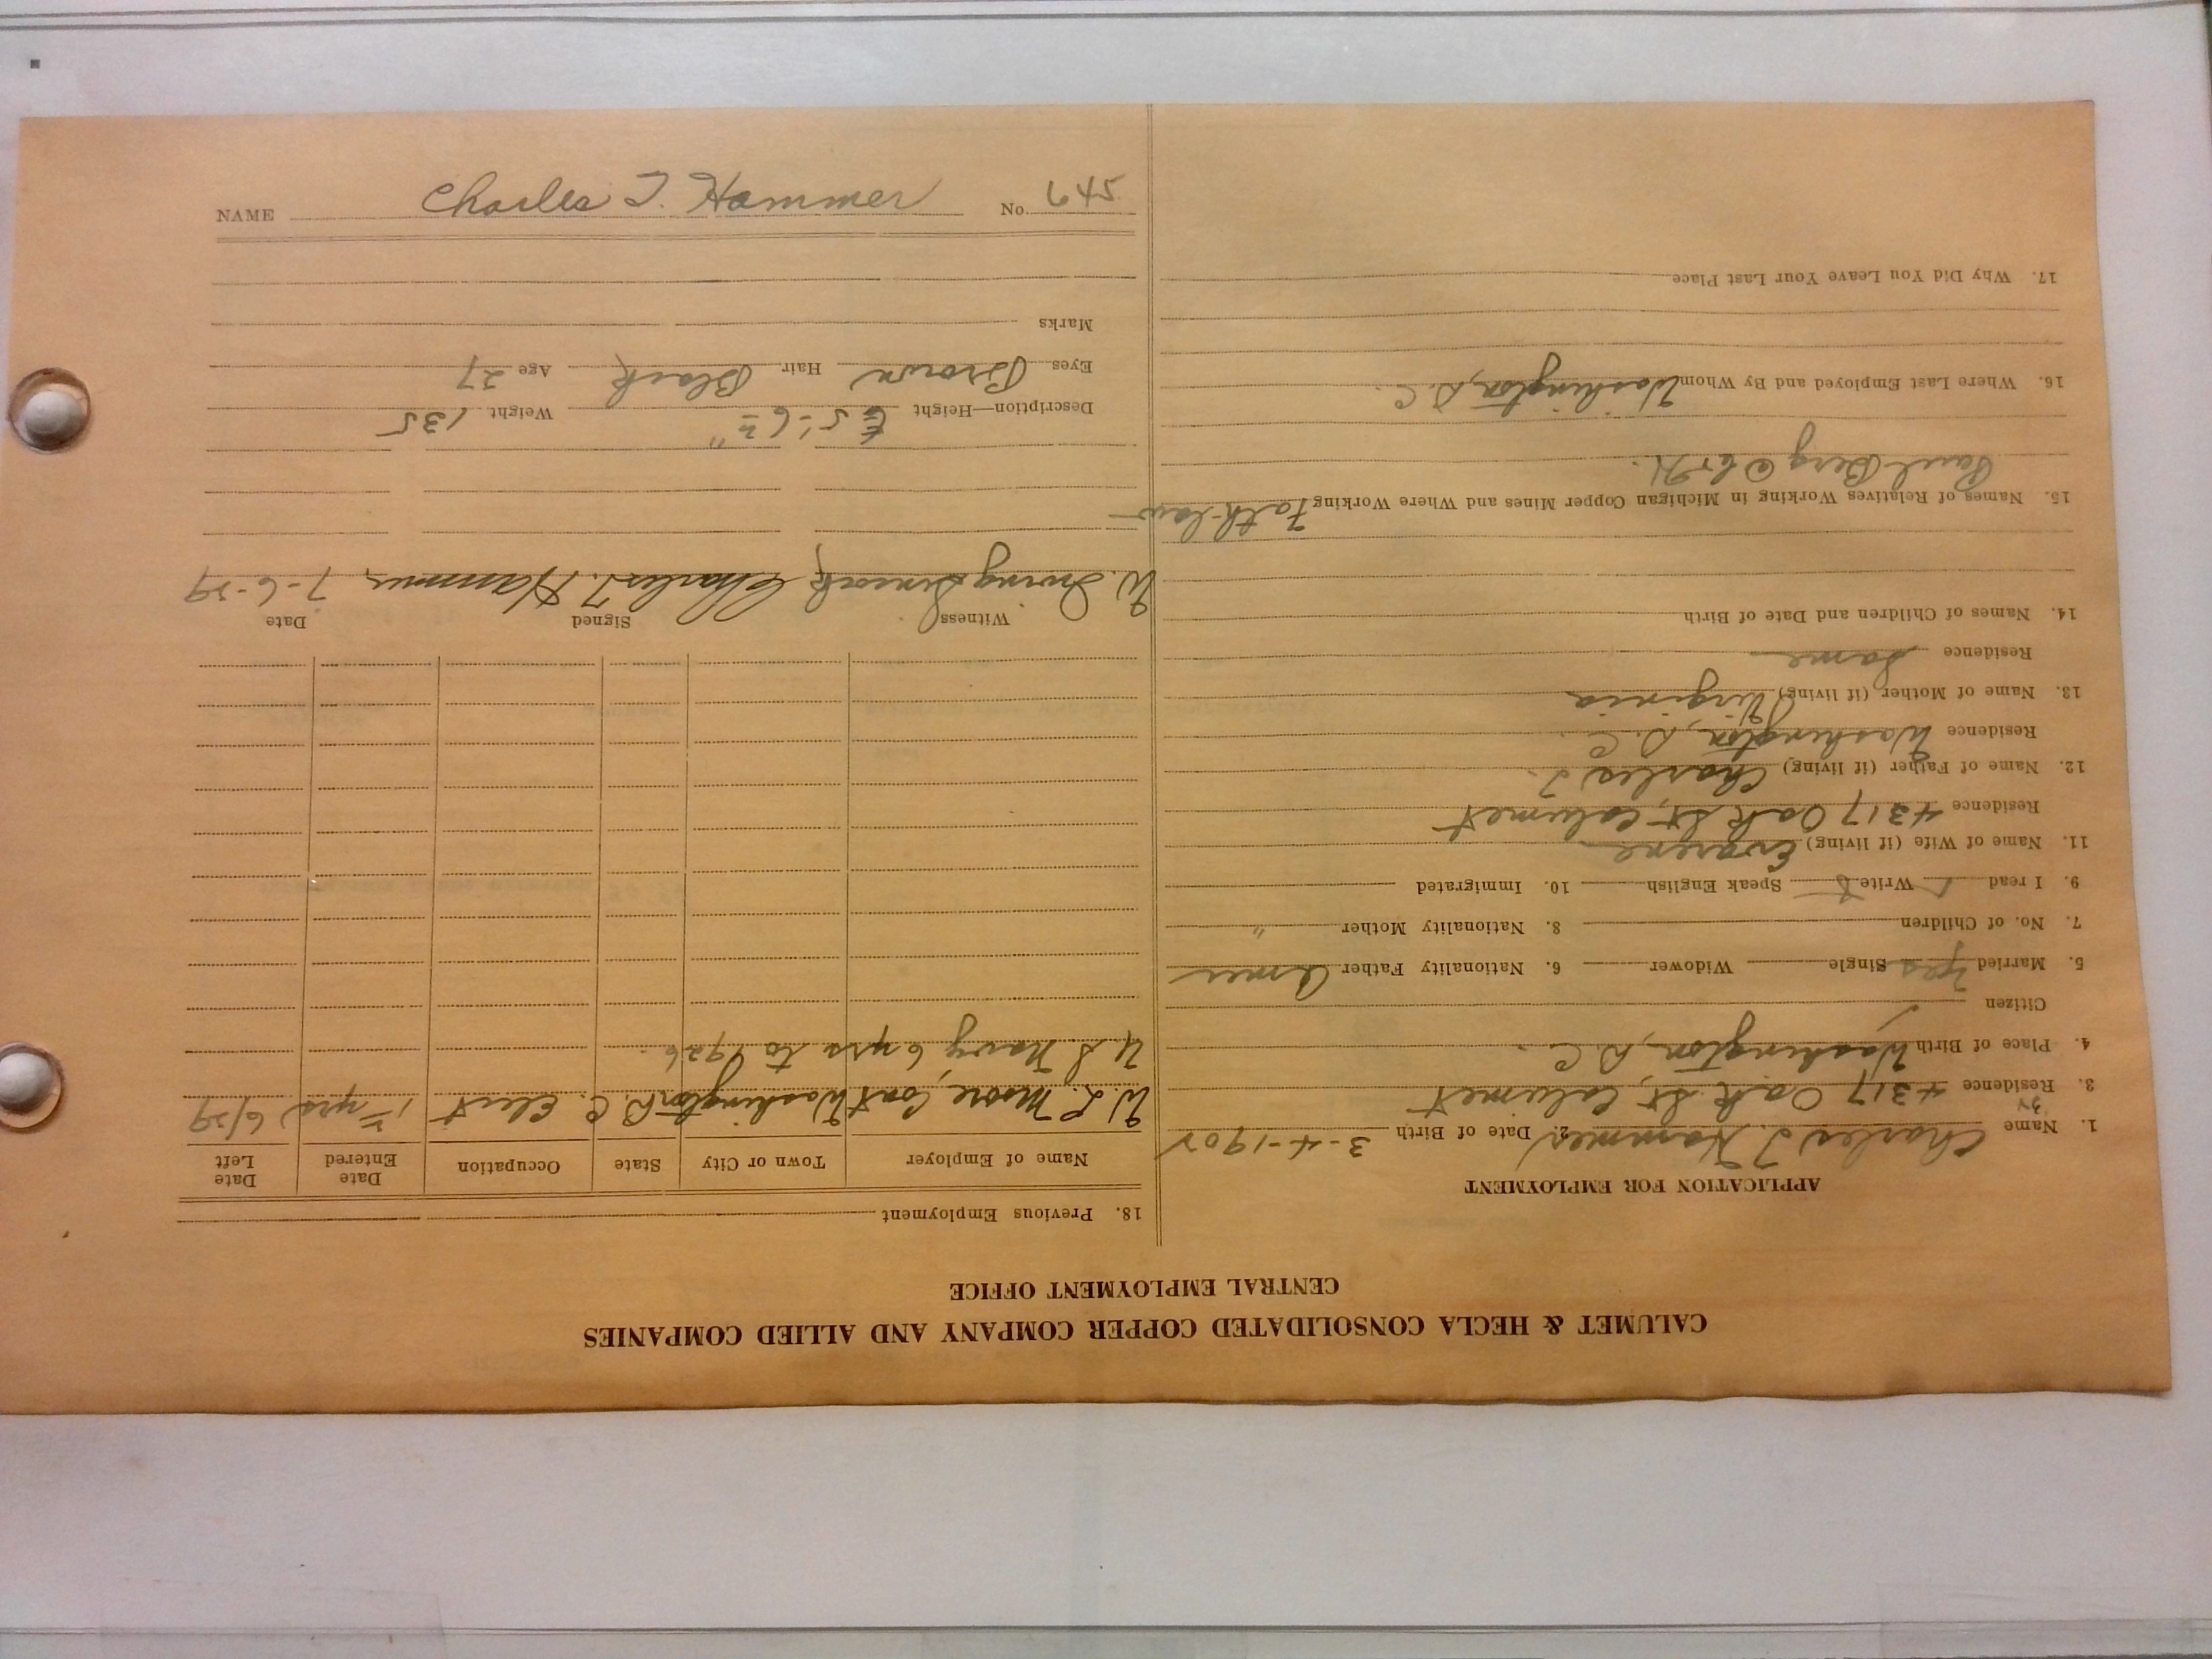 CALUMET & HECLA CONSOLIDATED COPPER COMPANY AND ALLIED COMPANIES
CENTRAL EMPLOYMENT OFFICE
APPLICATION FOR EMPLOYMENT
1. Name Charles T. Hammer 2. Date of Birth 3-4-1902
3. Residence 4317 Oak St, Calumet
4. Place of Birth Washington, D.C.
Citizen
5. Married yes Single Widower 6. Nationality Father Amer
7. No. of Children 8. Nationality Mother "
9. I read Write Speak English 10. Immigrated
11. Name of Wife (if living)
Residence 4317 Oak St, Calumet
12. Name of Father (if living) Charles T.
Residence Washington, D.C.
13. Name of Mother (if living) Virginia
Residence Same
14. Names of Children and Date of Birth
15. Names of Relatives Working in Michigan Copper Mines and Where Working Fath-law
Paul Berg @ C+H.
16. Where Last Employed and By Whom Washington, D.C.
17. Why Did You Leave Your Last Place
18. Previous Employment
Name of Employer Town or City State Occupation Date Entered Date Left
W. L. Moore, Cont Washington D.C. Elect 1 yrs 6/29
U.S Navy 6 yrs to 1926.
Witness Signed Date
W. Irving Charles T. Hammer 7-6-29
Description—Height 5'-6 " Weight 135
Eyes Brown Hair Black Age 27
Marks
NAME Charles T. Hammer No. 645